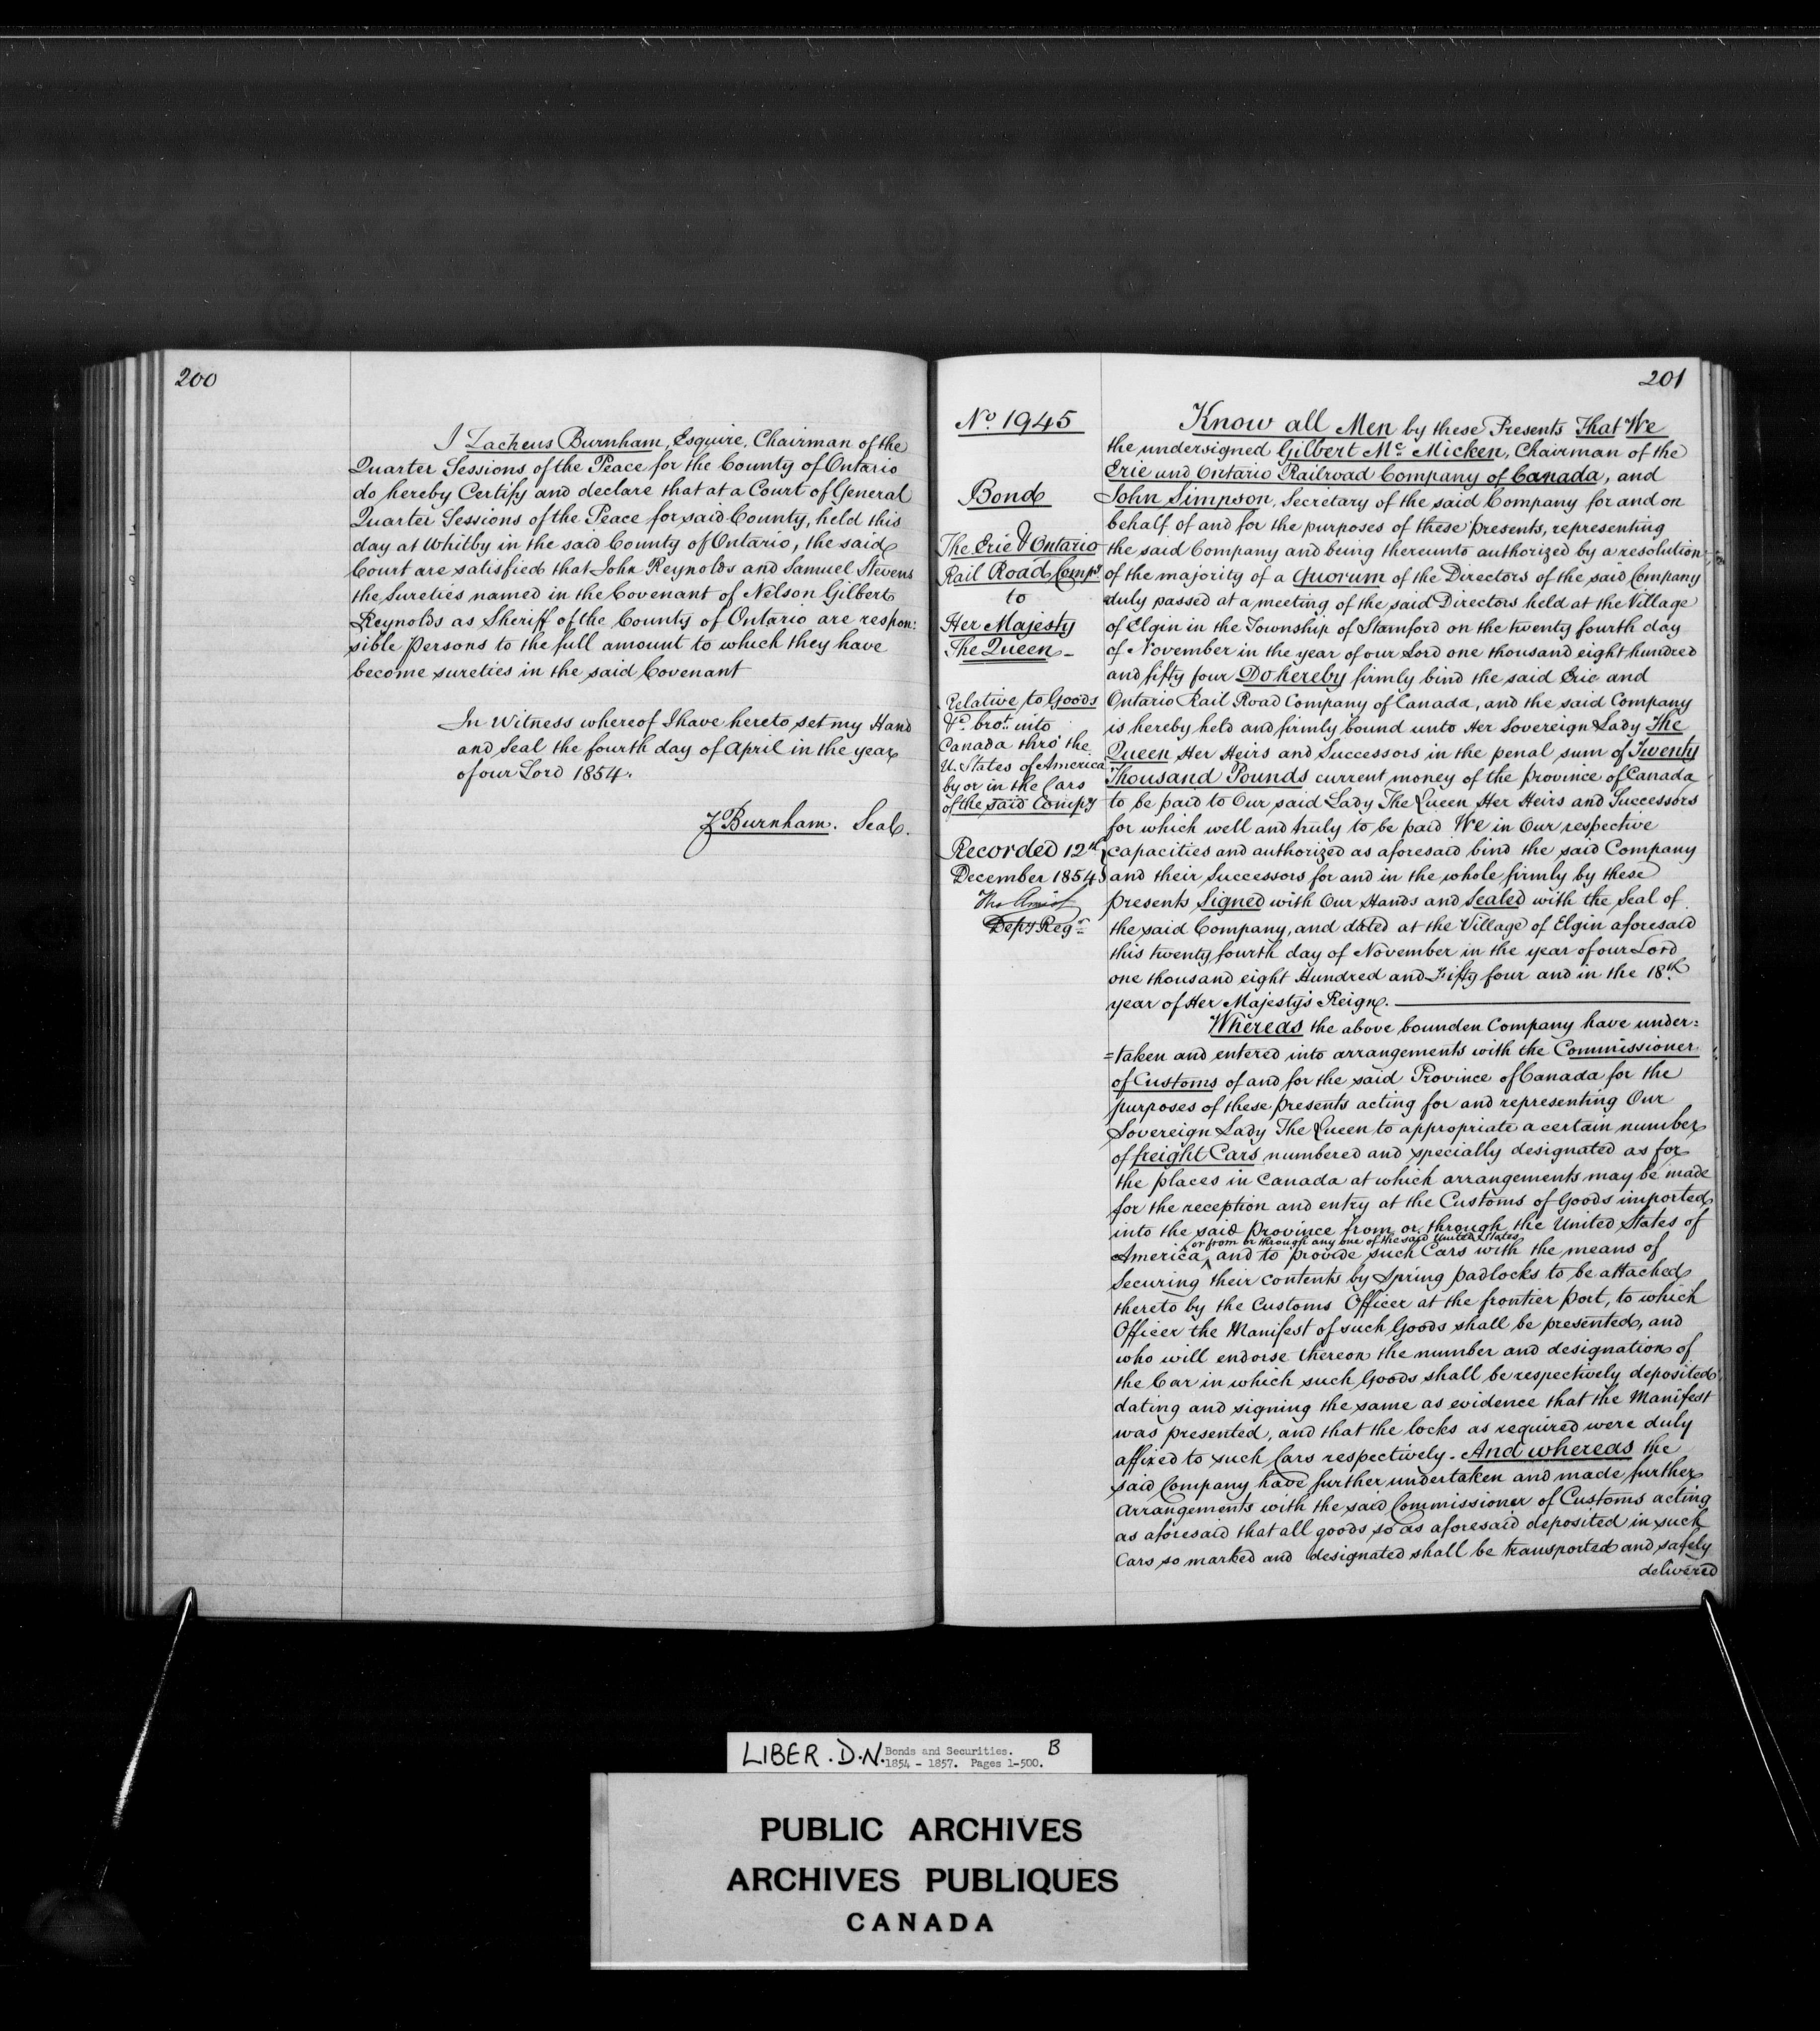 200
I Zacheus Burnham, Esquire, Chairman of the
Quarter Sessions of the Peace for the County of Ontario
do hereby Certify and declare that at a Court of General
Quarter Sessions of the Peace for said County, held this
day at Whitby in the said County of Ontario, the said
Court are satisfied that John Reynolds and Samuel Stevens
the Sureties named in the Covenant of Nelson Gilbert
Reynolds as Sheriff of the County of Ontario are respon:
sible Persons to the full amount to which they have
become sureties in the said Covenant
In Witness whereof I have hereto set my Hand
and Seal the fourth day of April in the year
of our Lord 1854.
Z Burnham. Seal.
201
No. 1945
Bond
The Erie & Ontario
Rail Road Compy
to
Her Majesty
The Queen_
Relative to Goods
&c. brot. into
Canada thro' the
U. States of America
by or in the Cars
of the said Compy
Recorded 12th
December 1854
Depy Regr
Know all Men by these Presents That We
the undersigned Gilbert Mc Micken, Chairman of the
Erie and Ontario Railroad Company of Canada, and
John Simpson, Secretary of the said Company for and on
behalf of and for the purposes of these presents, representing
the said Company and being thereunto authorized by a resolution
of the majority of a Quorum of the Directors of the said Company
duly passed at a meeting of the said Directors held at the Village
of Elgin in the Township of Stamford on the twenty fourth day
of November in the year of our Lord one thousand eight hundred
and fifty four Do hereby firmly bind the said Erie and
Ontario Rail Road Company of Canada, and the said Company
is hereby held and firmly bound unto Her Sovereign Lady The
Queen Her Heirs and Successors in the penal sum of Twenty
Thousand Pounds current money of the Province of Canada
to be paid to Our said Lady The Queen Her Heirs and Successors
for which well and truly to be paid We in Our respective
capacities and authorized as aforesaid bind the said Company
and their Successors for and in the whole firmly by these
presents Signed with Our Hands and Sealed with the Seal of
the said Company, and dated at the Village of Elgin aforesaid
this twenty fourth day of November in the year of our Lord
one thousand eight Hundred and Fifty four and in the 18th
year of Her Majesty's Reign.
Whereas the above bounden Company have under=
=taken and entered into arrangements with the Commissioner
of Customs of and for the said Province of Canada for the
purposes of these presents acting for and representing Our
Sovereign Lady The Queen to appropriate a certain number
of freight Cars numbered and specially designated as for
the places in Canada at which arrangements may be made
for the reception and entry at the Customs of Goods imported
into the said Province from or through the United States of
or from or through any one of the said United States
America, and to provide such Cars with the means of
Securing their contents by Spring padlocks to be attached
thereto by the Customs Officer at the frontier port, to which
Officer the Manifest of such Goods shall be presented, and
who will endorse thereon the number and designation of
the Car in which such Goods shall be respectively deposited
dating and signing the same as evidence that the Manifest
was presented, and that the locks as required were duly
affixed to such Cars respectively. And whereas the
said Company have further undertaken and made further
Arrangements with the said Commissioner of Customs acting
as aforesaid that all goods so as aforesaid deposited in such
Cars so marked and designated shall be transported and safely
delivered
LIBER. D.N. Bonds and Securities. B
1854 - 1857. Pages 1-500.
PUBLIC ARCHIVES
ARCHIVES PUBLIQUES
CANADA